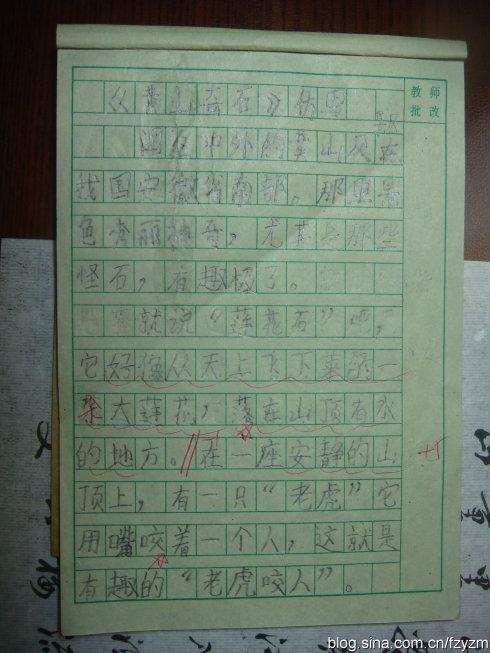 教师
批改
《黄山奇石》仿写
闻名中外的黄山风景区在
我国安徽省南部。那里景
色秀丽神奇，尤其是那些
怪石，有趣极了。
就说“莲花石”吧，
它好像从天上飞下来的一
朵大莲花，落在山顶有水
的地方。在一座安静的山
顶上，有一只“老虎”它
用嘴咬着一个人，这就是
有趣的“老虎咬人”。
blog.sina.com.cn/fzyzm